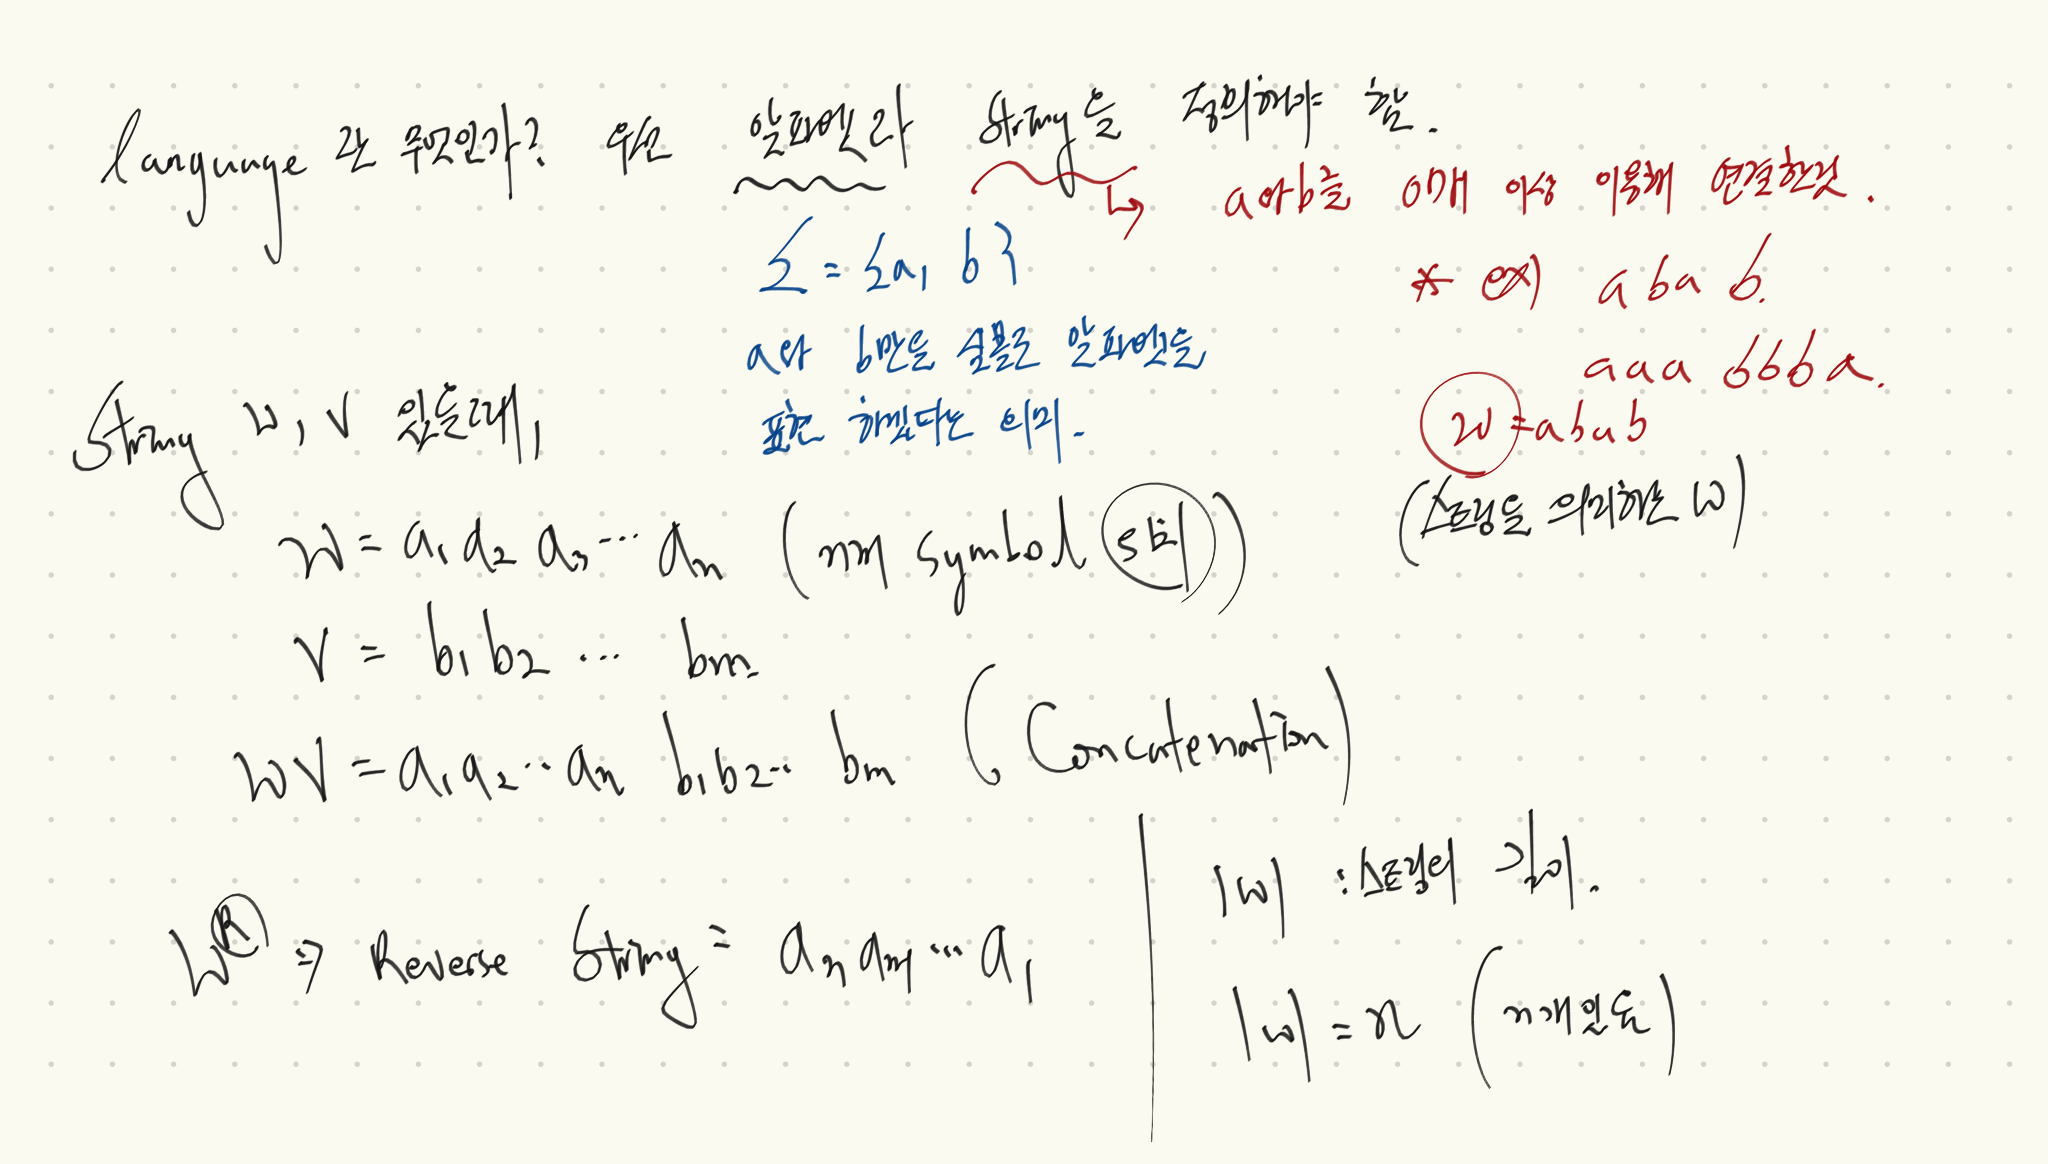 language 란 무엇인가? 우선 알파벳과 string을 정의해야 함.
a와 b를 0개 이상 이용해 연결한것.
Σ = {a, b}
a와 b만을 심볼로 알파벳을
표현 하겠다는 의미.
* ex) a b a b.
a a a b b b a.
w = a b a b
(스트링을 의미하는 w)
String w, v 있을때,
w = a₁ a₂ a₃ ... aₙ (n개 symbol)
v = b₁ b₂ ... bₘ
wv = a₁ a₂ ... aₙ b₁ b₂ ... bₘ (Concatenation)
wᴿ ⇒ Reverse String = aₙ ... a₁
|w| : 스트링의 길이.
|w| = n (n개 있음)